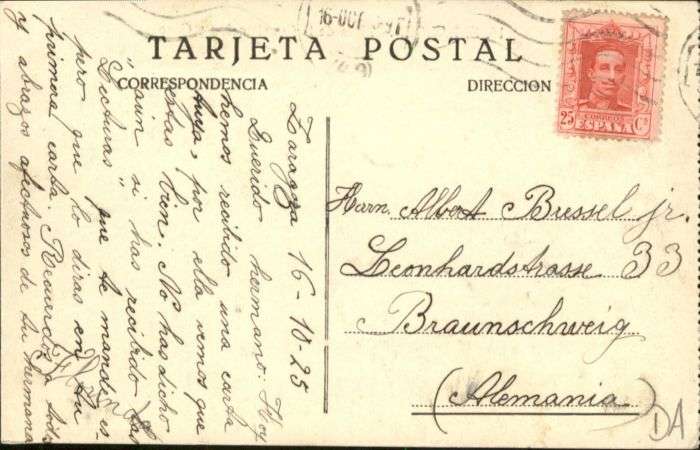 16-OCT
TARJETA POSTAL
CORRESPONDENCIA
DIRECCION
CORREOS
25 Cs
ESPAÑA
Zaragoza 16-10-25
Querido hermano: Hoy
hemos recibido una carta
tuya, por ella vemos que
estas bien. No has dicho
aun si has recibido las
"Lecturas" que te mande, es-
pero que lo diras en tu
primera carta. Recuerdos a todos
y abrazos afectuosos de tu hermana
Herrn. Albert Bussel jr.
Leonhardstrasse 33
Braunschweig
(Alemania)
DA